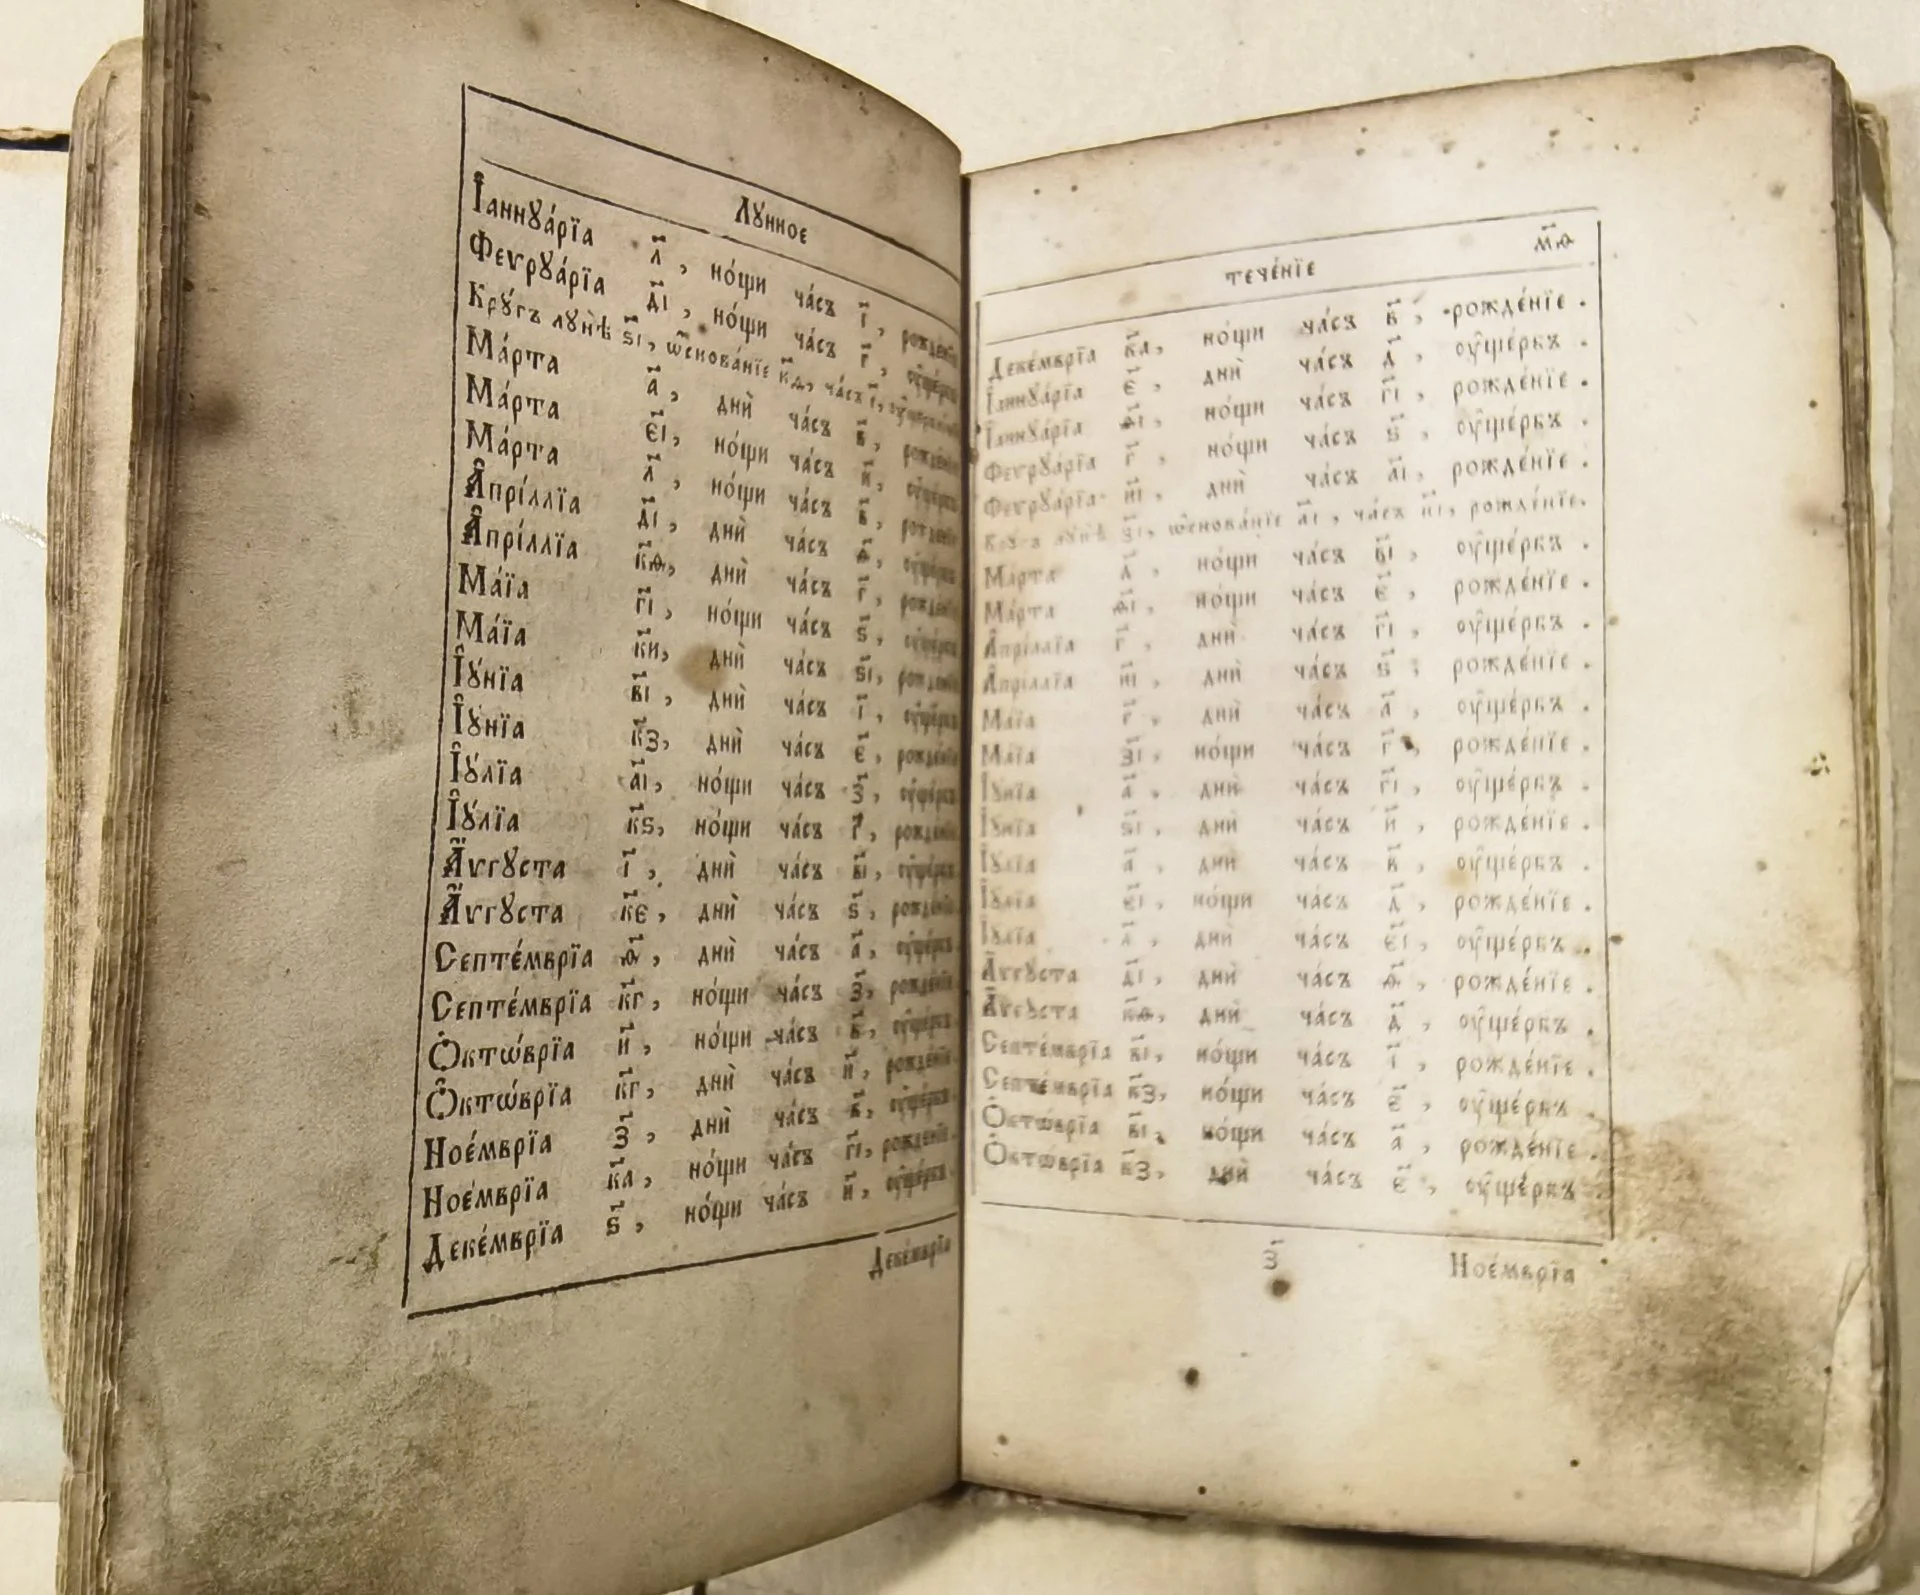 Лꙋнное
І҆аннꙋа́рїа л҃, но́щи ча́съ і҃, рожде́нїе
Феѵрꙋа́рїа д҃і, но́щи ча́съ г҃, ᲂу҆ще́рбъ
Крꙋ́гъ лꙋнѣ̀ ѕ҃і, ѡ҆снова́нїе к҃д, ча́съ і҃,
Ма́рта а҃, днѝ ча́съ в҃, рожде́нїе
Ма́рта є҃і, но́щи ча́съ и҃, ᲂу҆ще́рбъ
Ма́рта л҃, но́щи ча́съ в҃, рожде́нїе
А҆прі́ллїа д҃і, днѝ ча́съ ѳ҃, ᲂу҆ще́рбъ
А҆прі́ллїа к҃ѳ, днѝ ча́съ г҃, рожде́нїе
Ма́їа г҃і, но́щи ча́съ ѕ҃, ᲂу҆ще́рбъ
Ма́їа к҃и, днѝ ча́съ ѕ҃і, рожде́нїе
І҆ꙋ́нїа в҃і, днѝ ча́съ і҃, ᲂу҆ще́рбъ
І҆ꙋ́нїа к҃з, днѝ ча́съ є҃, рожде́нїе
І҆ꙋ́лїа а҃і, но́щи ча́съ з҃, ᲂу҆ще́рбъ
І҆ꙋ́лїа к҃ѕ, но́щи ча́съ г҃, рожде́нїе
А҆́ѵгꙋста і҃, днѝ ча́съ в҃і, ᲂу҆ще́рбъ
А҆́ѵгꙋста к҃є, днѝ ча́съ ѕ҃, рожде́нїе
Септе́мврїа ѳ҃, днѝ ча́съ а҃, ᲂу҆ще́рбъ
Септе́мврїа к҃г, но́щи ча́съ з҃, рожде́нїе
Ѻ҆ктѡ́врїа и҃, но́щи ча́съ в҃, ᲂу҆ще́рбъ
Ѻ҆ктѡ́врїа к҃г, днѝ ча́съ и҃, рожде́нїе
Ное́мврїа з҃, днѝ ча́съ в҃, ᲂу҆ще́рбъ
Ное́мврїа к҃а, но́щи ча́съ г҃і, рожде́нїе
Деке́мврїа ѕ҃, но́щи ча́съ и҃, ᲂу҆ще́рбъ
Деке́мврїа
м҃ѳ
тече́нїе
Деке́мврїа к҃а, но́щи ча́съ в҃, рожде́нїе.
І҆аннꙋа́рїа є҃, днѝ ча́съ д҃, ᲂу҆ще́рбъ.
І҆аннꙋа́рїа ѳ҃і, но́щи ча́съ г҃і, рожде́нїе.
Феѵрꙋа́рїа г҃, но́щи ча́съ ѕ҃, ᲂу҆ще́рбъ.
Феѵрꙋа́рїа и҃і, днѝ ча́съ а҃і, рожде́нїе.
Крꙋ́гъ лꙋнѣ̀ з҃і, ѡ҆снова́нїе а҃і, ча́съ и҃і, рожде́нїе.
Ма́рта д҃, но́щи ча́съ в҃і, ᲂу҆ще́рбъ.
Ма́рта ѳ҃і, но́щи ча́съ є҃, рожде́нїе.
А҆прі́ллїа г҃, днѝ ча́съ г҃і, ᲂу҆ще́рбъ.
А҆прі́ллїа и҃і, днѝ ча́съ ѕ҃, рожде́нїе.
Ма́їа г҃, днѝ ча́съ а҃, ᲂу҆ще́рбъ.
Ма́їа з҃і, но́щи ча́съ г҃, рожде́нїе.
І҆ꙋ́нїа а҃, днѝ ча́съ г҃і, ᲂу҆ще́рбъ.
І҆ꙋ́нїа ѕ҃і, днѝ ча́съ и҃, рожде́нїе.
І҆ꙋ́лїа а҃, днѝ ча́съ в҃, ᲂу҆ще́рбъ.
І҆ꙋ́лїа є҃і, но́щи ча́съ д҃, рожде́нїе.
І҆ꙋ́лїа л҃, днѝ ча́съ є҃і, ᲂу҆ще́рбъ.
А҆́ѵгꙋста д҃і, днѝ ча́съ ѳ҃, рожде́нїе.
А҆́ѵгꙋста к҃ѳ, днѝ ча́съ д҃, ᲂу҆ще́рбъ.
Септе́мврїа в҃і, но́щи ча́съ і҃, рожде́нїе.
Септе́мврїа к҃з, но́щи ча́съ є҃, ᲂу҆ще́рбъ.
Ѻ҆ктѡ́врїа в҃і, но́щи ча́съ а҃, рожде́нїе.
Ѻ҆ктѡ́врїа к҃з, днѝ ча́съ є҃, ᲂу҆ще́рбъ
з҃ Ное́мврїа